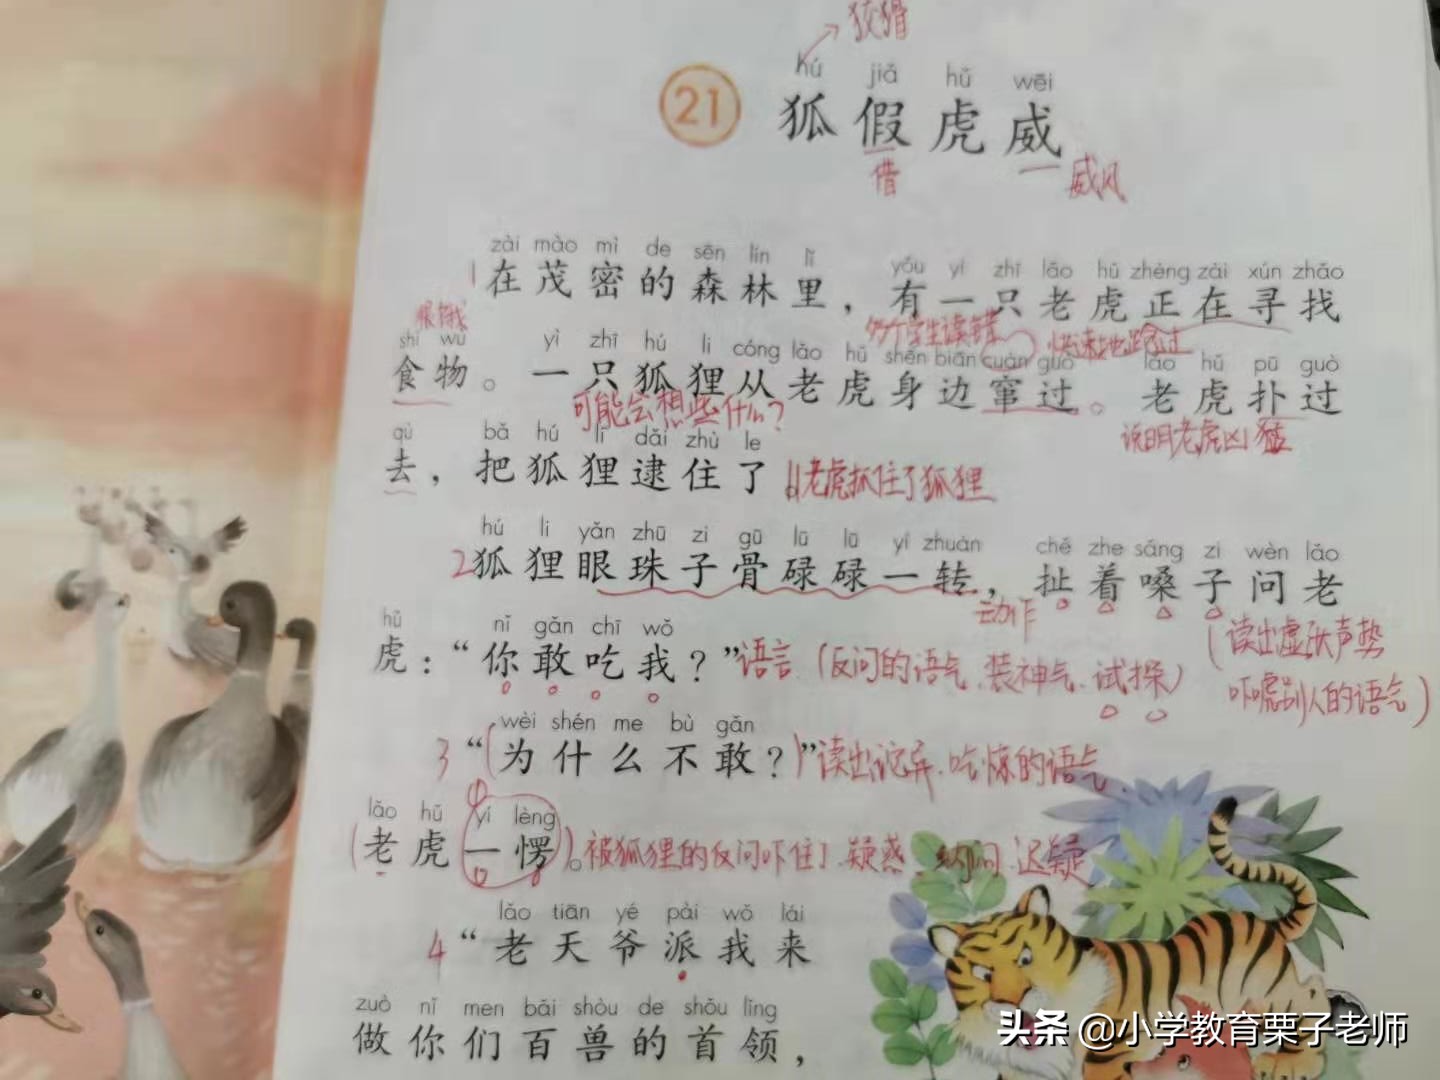 狡猾
hú jiǎ hǔ wēi
21 狐假虎威
借 威风
zài mào mì de sēn lín lǐ yǒu yì zhī lǎo hǔ zhèng zài xún zhǎo
1 在茂密的森林里，有一只老虎正在寻找
很饿
shí wù yì zhī hú li cóng lǎo hǔ shēn biān cuàn guò lǎo hǔ pū guò
食物。一只狐狸从老虎身边窜过。老虎扑过
可能会想些什么？ 说明老虎凶猛
qù bǎ hú li dǎi zhù le
去，把狐狸逮住了。老虎抓住了狐狸
hú li yǎn zhū zi gū lū lū yí zhuàn chě zhe sǎng zi wèn lǎo
2 狐狸眼珠子骨碌碌一转，扯着嗓子问老
动作
hǔ nǐ gǎn chī wǒ
虎：“你敢吃我？”语言（反问的语气、装神气、试探）
（读出虚张声势
吓唬别人的语气）
wèi shén me bù gǎn
3 “（为什么不敢？）”读出诧异、吃惊的语气
lǎo hǔ yí lèng
（老虎一愣）。被狐狸的反问吓住了、疑惑、纳闷、迟疑
lǎo tiān yé pài wǒ lái
4 “老天爷派我来
zuò nǐ men bǎi shòu de shǒu lǐng
做你们百兽的首领，
头条 @小学教育栗子老师